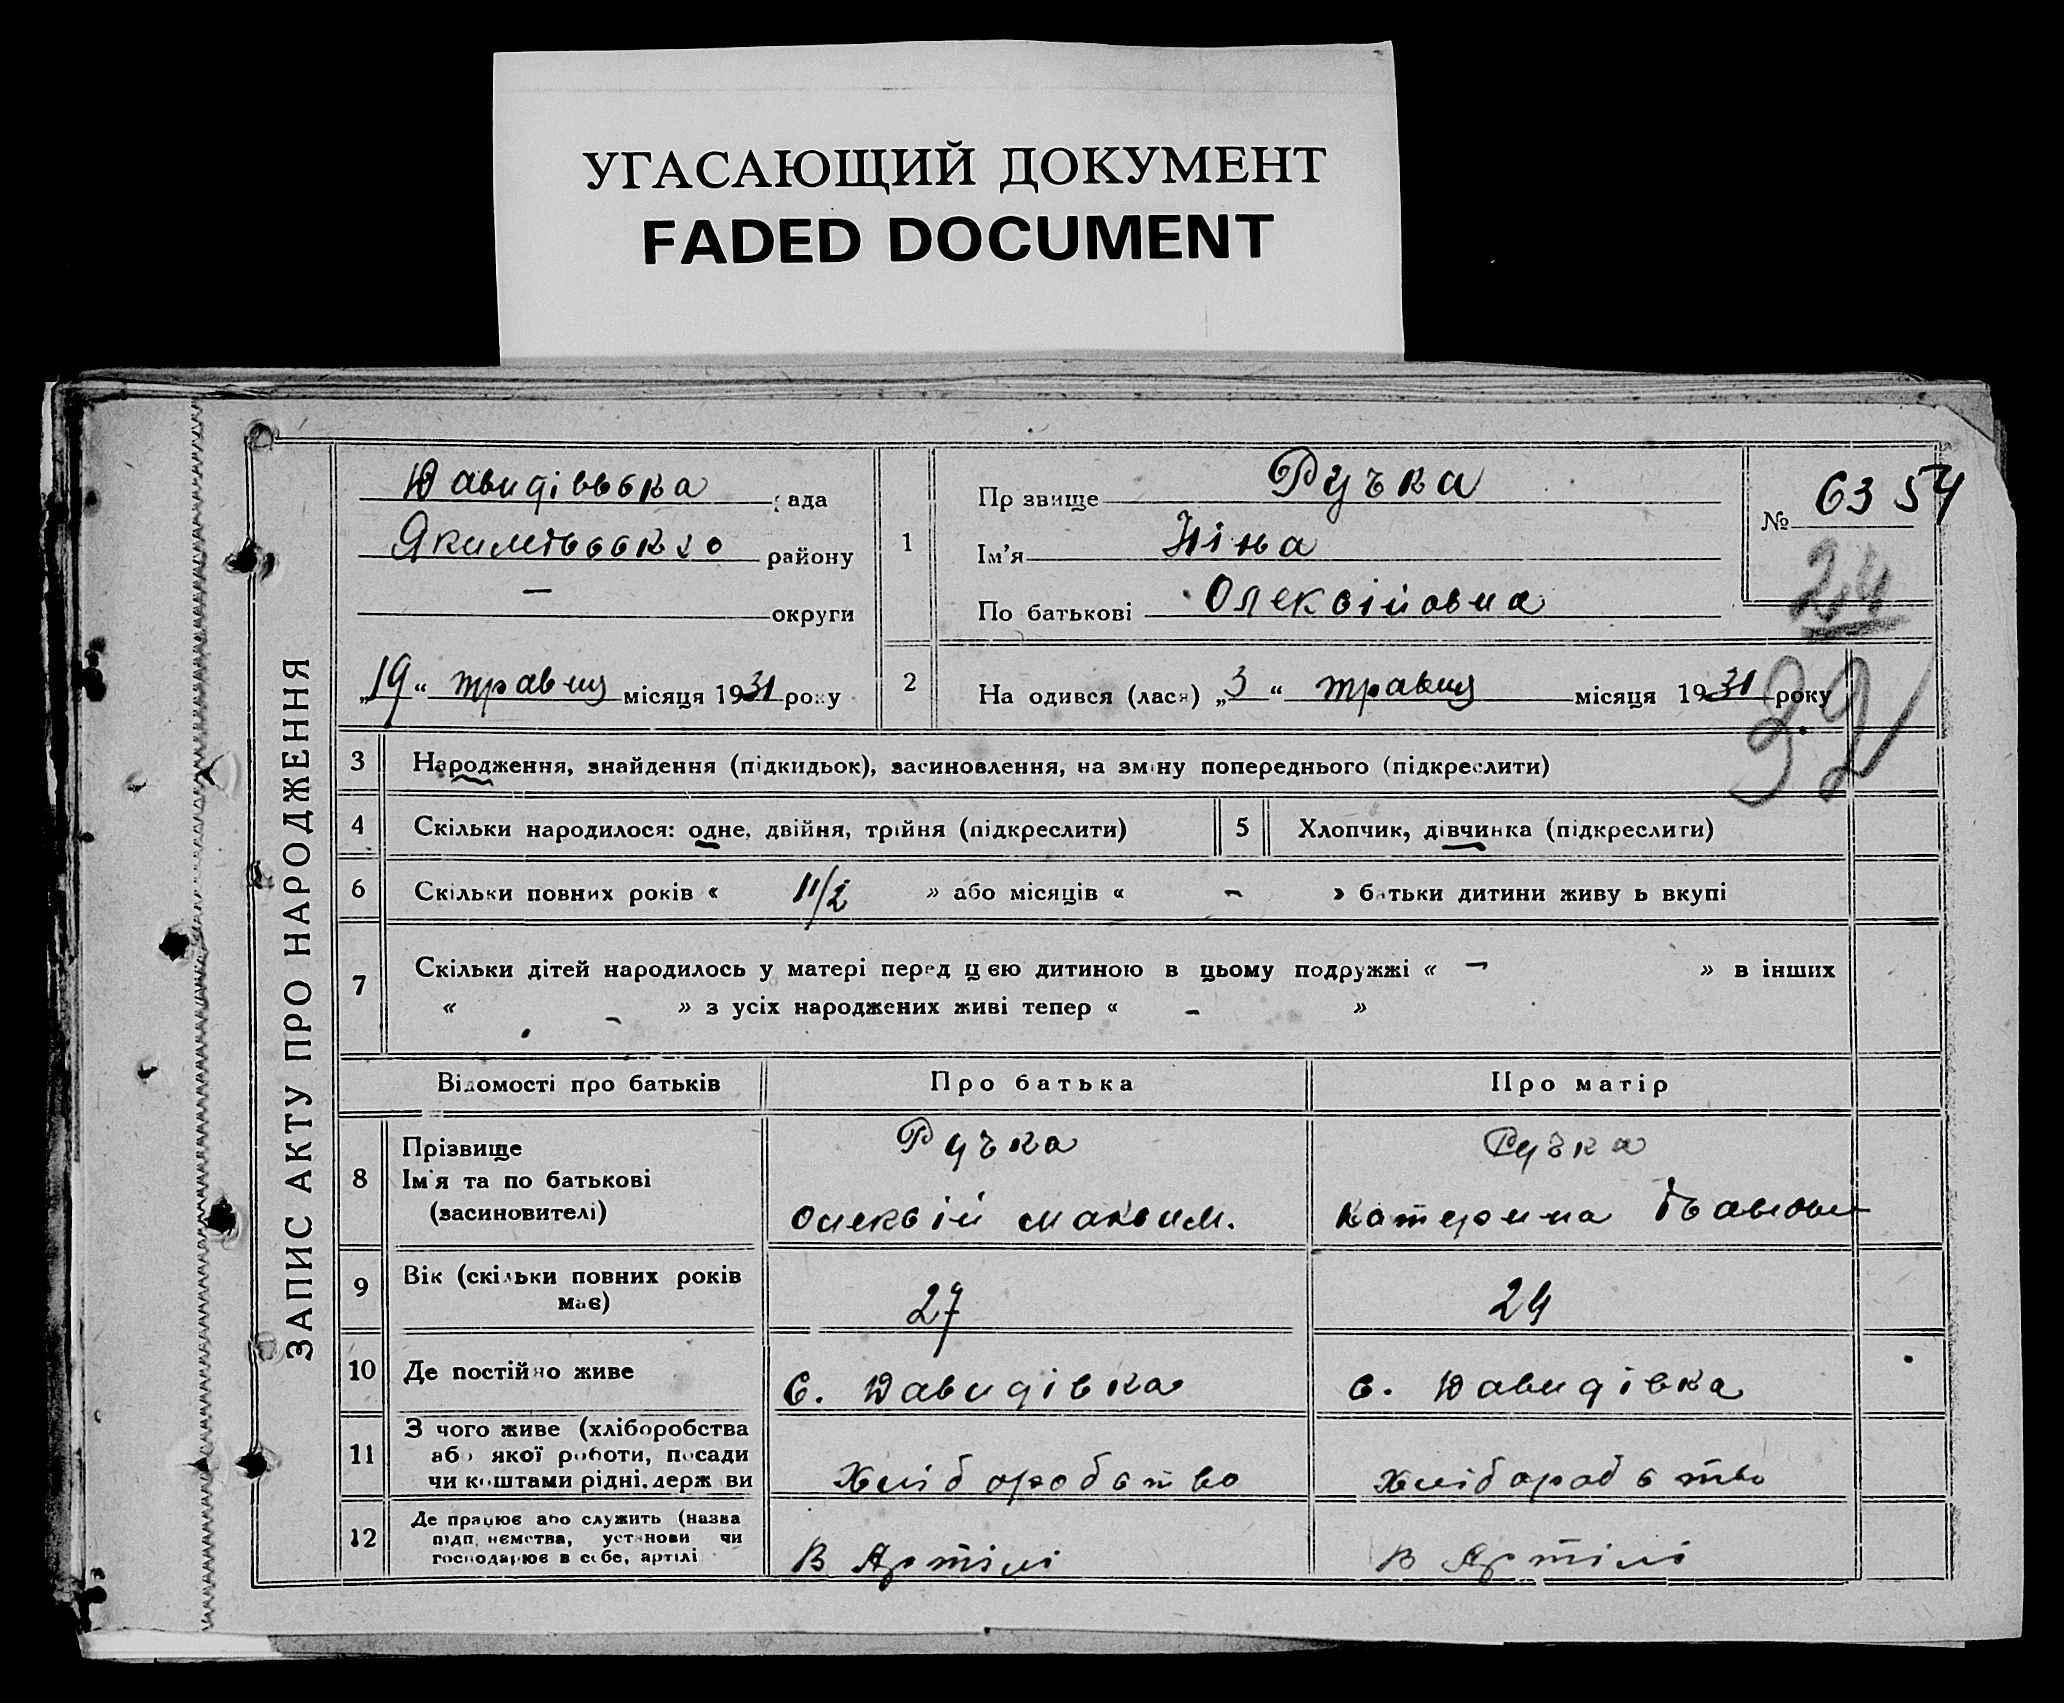 УГАСАЮЩИЙ ДОКУМЕНТ
FADED DOCUMENT
ЗАПИС АКТУ ПРО НАРОДЖЕННЯ
Давидівська рада
Якимівського району
— округи
„19“ травня місяця 1931 року
1
Прзвище Ручка
Ім’я Ніна
По батькові Олексійовна
№ 63 54
24
32
2 На одився (лася) „3“ травня місяця 1931 року
3 Народження, знайдення (підкидьок), засиновлення, на зміну попереднього (підкреслити)
4 Скільки народилося: одне, двійня, трійня (підкреслити)
5 Хлопчик, дівчинка (підкреслити)
6 Скільки повних років « 11/2 » або місяців « – » батьки дитини живу ь вкупі
7 Скільки дітей народилось у матері перед цією дитиною в цьому подружжі « – » в інших
« – » з усіх народжених живі тепер « – »
Відомості про батьків Про батька Про матір
8 Прізвище
Ім'я та по батькові
(засиновителі)
Ручка
Олексій Максим.
Ручка
Катерина Івановн
9 Вік (скільки повних років
має)
27
24
10 Де постійно живе
с. Давидівка
с. Давидівка
11 З чого живе (хліборобства
або якої роботи, посади
чи коштами рідні, держ ви
Хліборобство
Хліборобство
12 Де працює або служить (назва
підп нємства, установи чи
господарює в себе, артілі
В Артілі
В Артілі